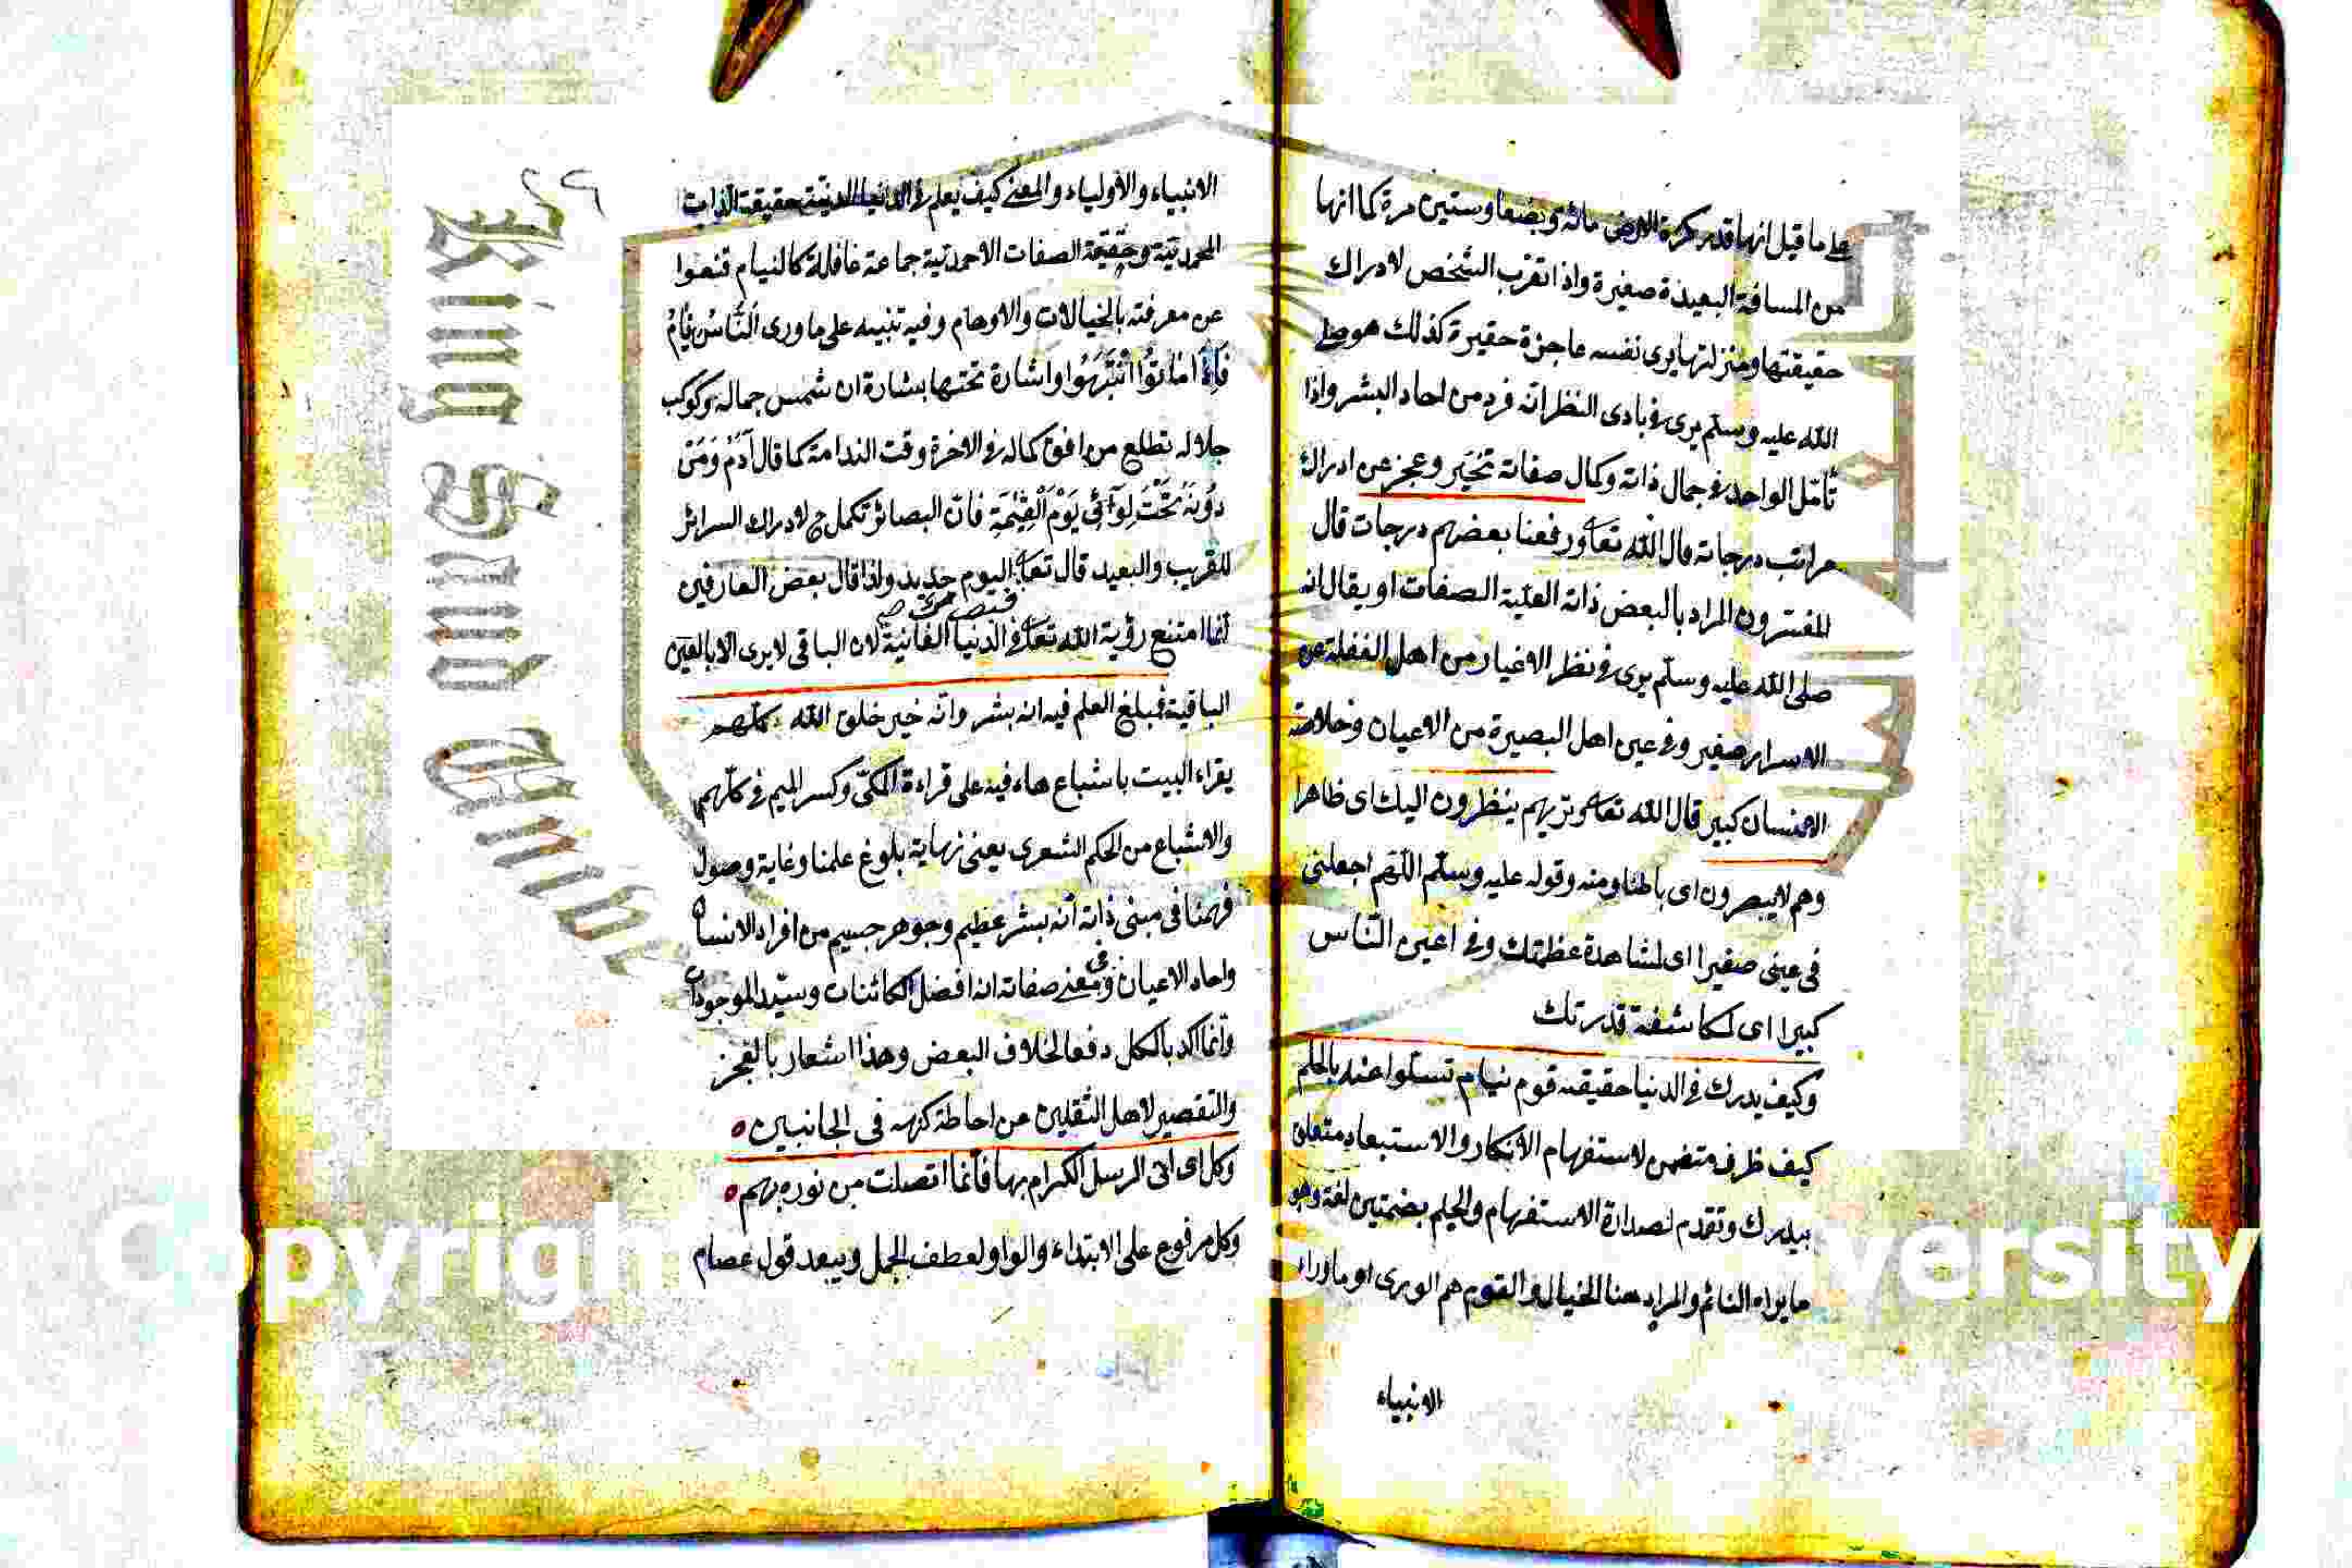 على ما قيل انها قدر كرة الارض مائة وبضعا وستين مرة كما انها
من المسافة البعيدة صغيرة واذا تقرب الشخص لادراك
حقيقتها ومنزلتها يرى نفسه عاجزة حقيرة كذلك هو صلى
الله عليه وسلم يرى في بادى النظر انه فرد من احاد البشر واذا
تأمّل الواحد في جمال ذاته وكمال صفاته تحيّر وعجز عن ادراك
مراتب درجاته قال الله تعا ورفعنا بعضهم درجات قال
المفسرون المراد بالبعض ذاته العليّة الصفات او يقال انه
صلى الله عليه وسلّم يرى في نظر الاغيار من اهل الغفلة عن
الاسرار صغير وفي عين اهل البصيرة من الاعيان وخلاصة
الانسان كبير قال الله تعا وتريهم ينظرون اليك اى ظاهرا
وهم لا يبصرون اى باطنا ومنه وقوله عليه وسلّم اللّهم اجعلنى
فى عينى صغيرا اى لمشاهدة عظمتك وفي اعين النّاس
كبيرا اى لمكاشفة قدرتك
وكيف يدرك في الدنيا حقيقته قوم نيام تسلوا عنه بالحلم
كيف ظرف متضمن لاستفهام الانكار والاستبعاد متعلق
بيدرك وتقدم لصدارة الاستفهام والحلم بضمتين لغة وهو
ما يراه النائم والمراد هنا الخيال والقوم هم الورى او ما وراء
الانبياء
٢٩
الانبياء والأولياء والمعنى كيف يعلم في الدنيا الدنيّة حقيقة الذات
المحمديّة وحقيقة الصفات الاحمديّة جماعة غافلة كالنيام قنعوا
عن معرفته بالخيالات والاوهام وفيه تنبيه على ما ورى النَّاسُ نِيَامٌ
فَاِذَا مَاتُوا انْتَبَهُوا واشارة تحتها بشارة ان شمس جماله وكوكب
جلاله تطلع من افق كماله في الاخرة وقت الندامة كما قال آدَمُ وَمَنْ
دُونَهُ تَحْتَ لِوَآئِى يَوْمَ الْقِيٰمَةِ فانّ البصائر تكمل ح لادراك السرائر
للقريب والبعيد قال تعا فبصرك اليوم حديد ولذا قال بعض العارفين
انّما امتنع رؤية الله تعا في الدنيا الفانية لان الباقى لا يرى الّا بالعين
الباقية فمبلغ العلم فيه انه بشر وانّه خير خلق الله كلّهم
يقراء البيت باشباع هاء فيه على قراءة المكّى وكسر الميم فى كلّهم
والاشباع من الحكم الشعرى يعنى نهاية بلوغ علمنا وغاية وصول
فهمنا فى مبنى ذاته أنّه بشر عظيم وجوهر جسيم من افراد الانسان
واحاد الاعيان وفى معنى صفاته انه افضل الكائنات وسيّد الموجودات
وانّما اكد بالكل دفعا لخلاف البعض وهذا اشعار بالعجز
والتقصير لاهل الثقلين عن احاطة كنهه فى الجانبين
وكل اى اتى الرسل الكرام بها فانّما اتصلت من نوره بهم
وكل مرفوع على الابتداء والواو لعطف الجمل ويبعد قول عصام
King Saud Univ
Copyrigh
versity